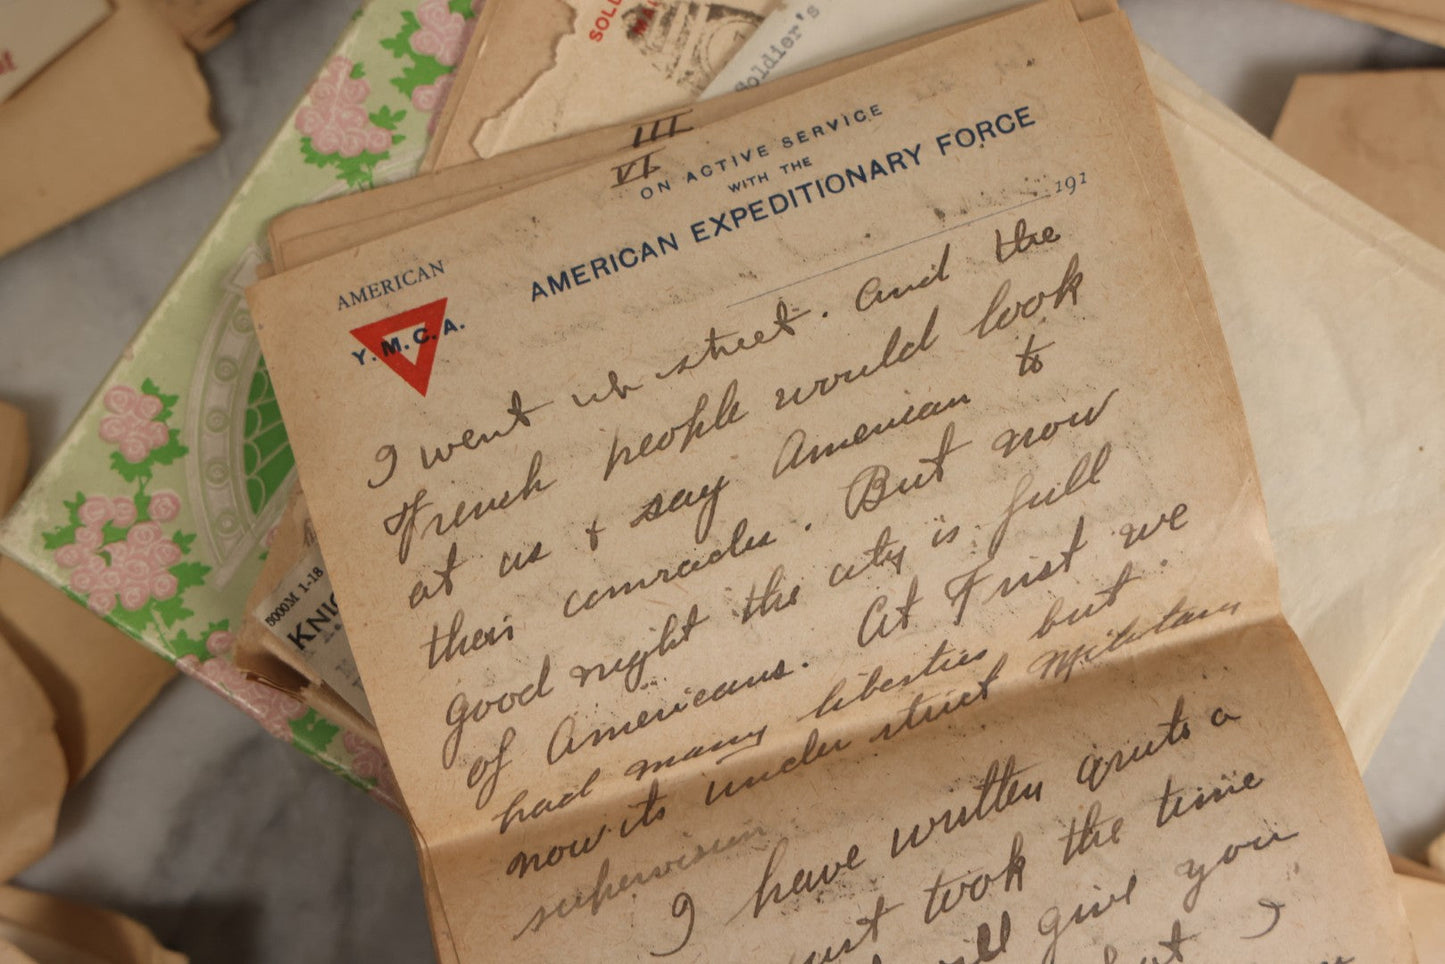 SOLDIER'S
MAIL
Soldier's
III
VI
ON ACTIVE SERVICE
WITH THE
AMERICAN EXPEDITIONARY FORCE
191
AMERICAN
Y. M. C. A.
5000M 1-18
KNIG
I went up street. And the
French people would look
at us + say American to
their comrades. But now
good night the city is full
of Americans. At First we
had many liberties but.
now its under strict Military
supervision.
I have written quite a
just took the time
will give you
that I